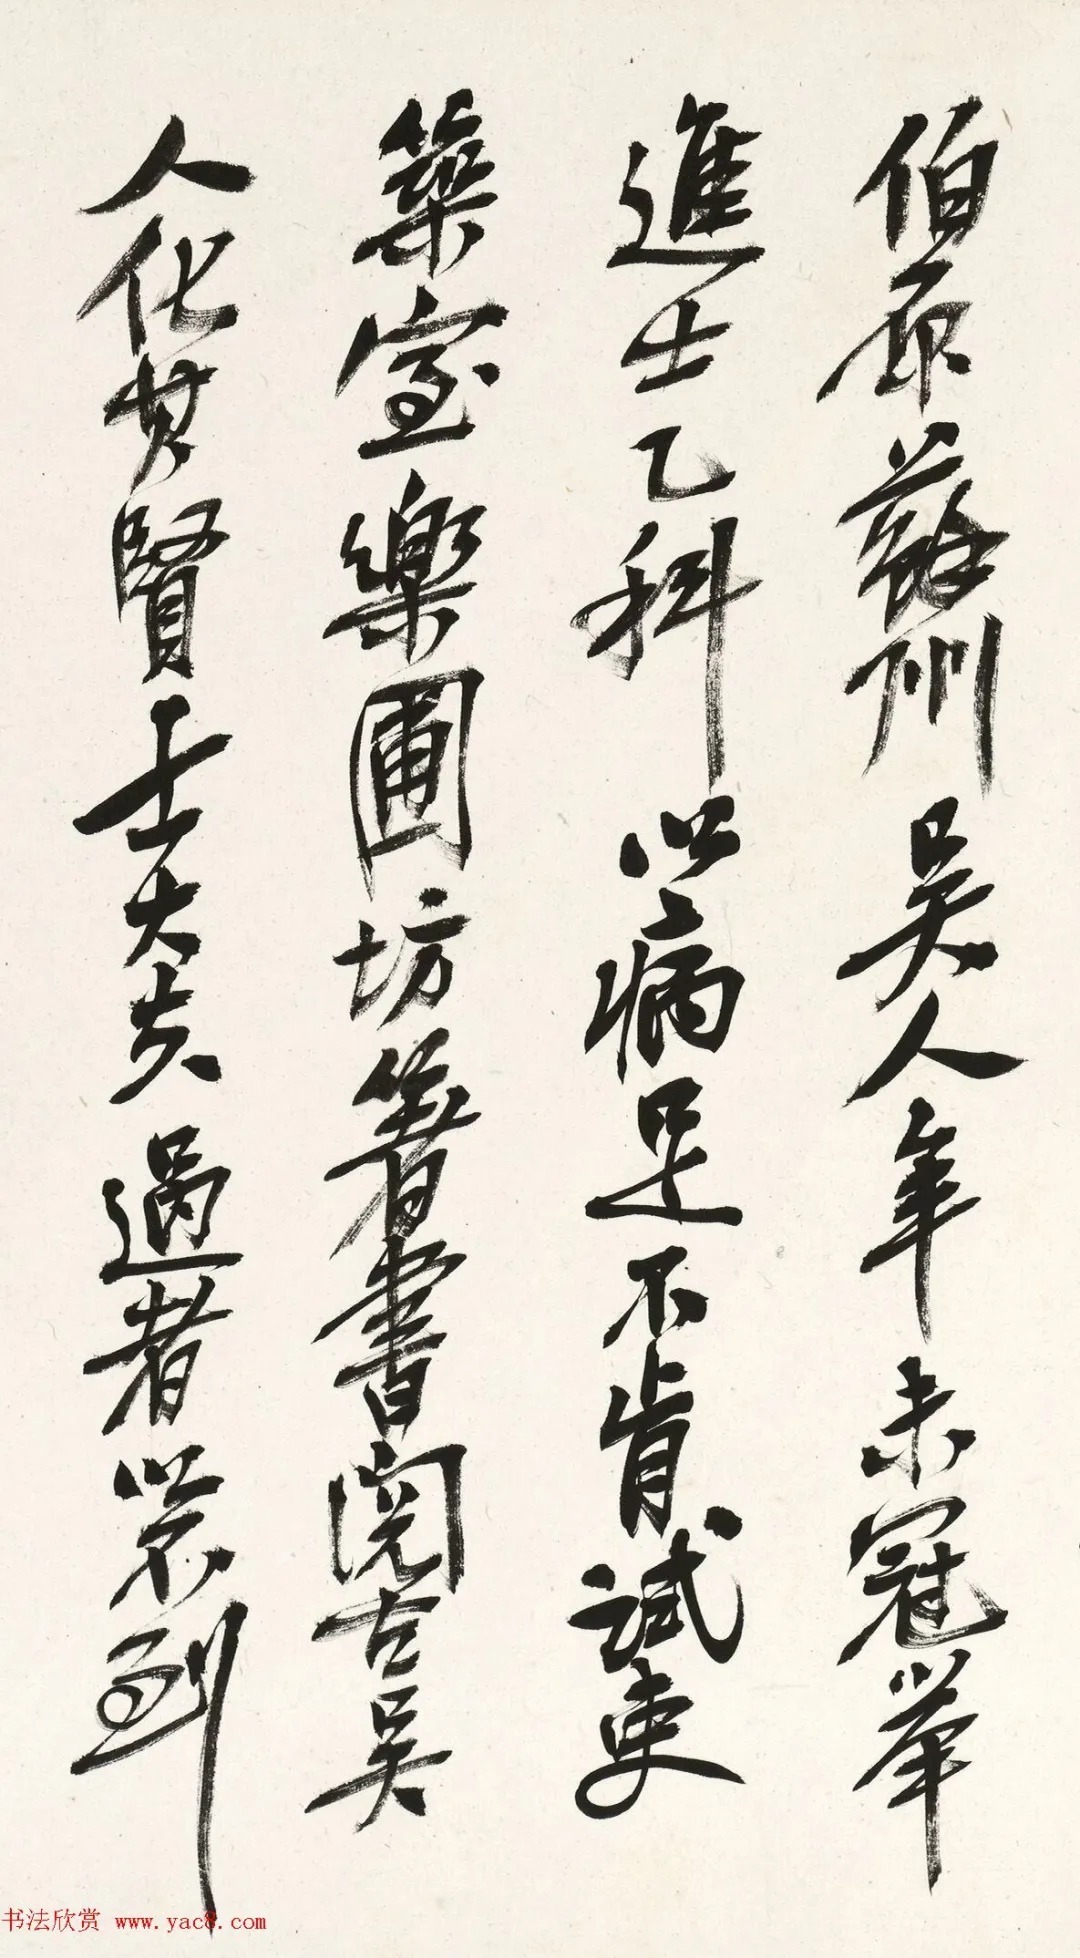 伯原蘇州吴人年未冠舉
進士乙科以病足不肯試吏
築室樂圃坊著書閱古吴
人化其賢士大夫過者以不到
书法欣赏 www.yac8.com